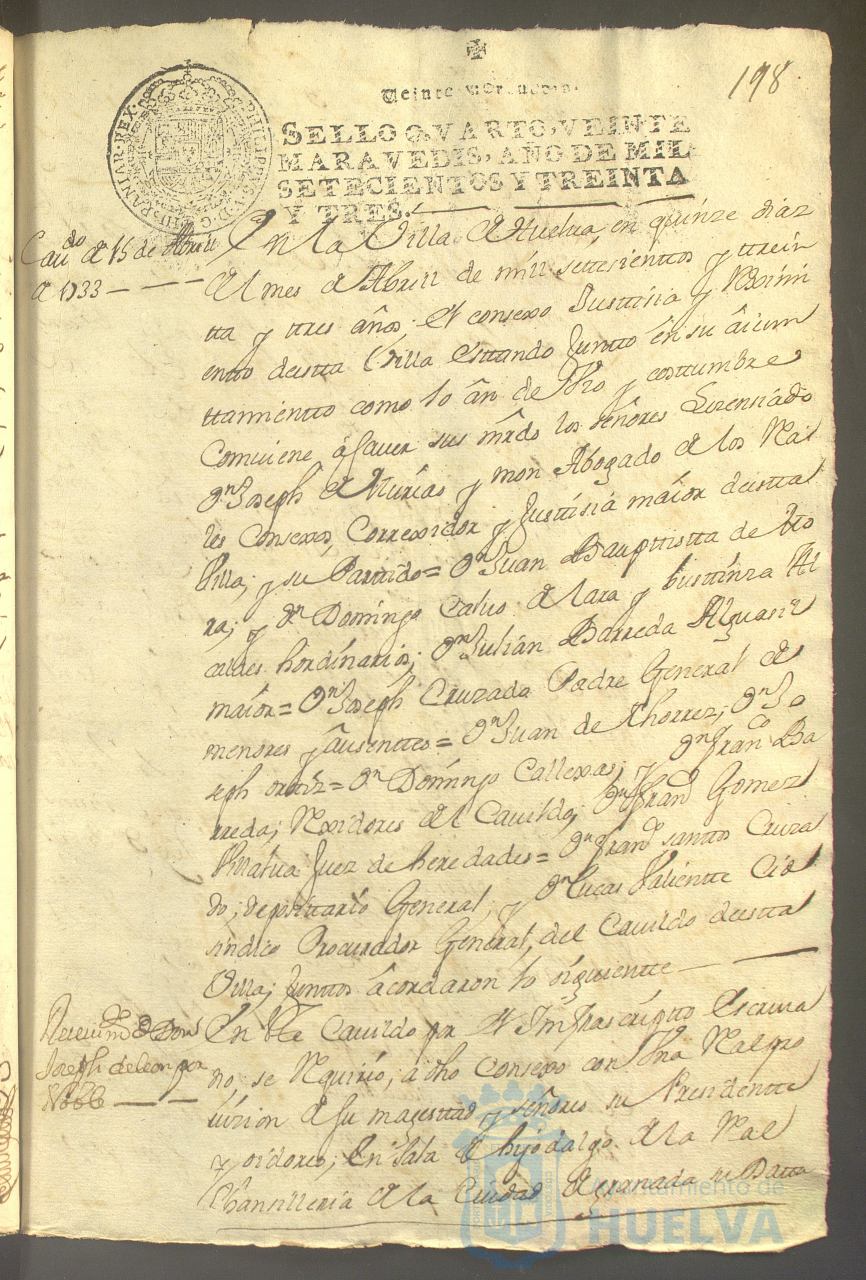 198
Veinte maravedis.
SELLO QVARTO, VEINTE
MARAVEDIS, AÑO DE MIL
SETECIENTOS Y TREINTA
Y TRES.
PHILIPPUS V D G HISPANIAR REX
Cavdo d 15 de Abrill
d 1733
En la Villa d Huelva, en quinze dias
del mes d Abrill de mill settesienttos y ttrein
tta y ttres años: el consexo Justtisia y Reximi
entto destta Villa esttando Juntto en su aiun
ttamientto como lo an de Vso y costtumbre
Comviene, a saver sus mrds los señores Lizensiado
Dn Joseph d Murias y mon Abogado d los Rea
les Consexos, Correxidor y Justtisia maior destta
Villa; y su Parttido = Dn Juan Bapttistta de
ra; y Dn Domingo Calvo d lara y busttinza Al
caldes hordinarios; Dn Julian Barreda Alguasil
maior = Dn Joseph Cruzada Padre General de
menores y ausenttes = Dn Juan de Thorrez; Dn Jo
seph orttiz = Dn Domingo Callexas; y Dn Franco Ba
rreda; Rexidores del Cavildo; Dn Frano Gomez
Juez de heredades = Dn Frano santtos Cruza
do; deposittario General, y Dn Lucas Valientte
sindico Procurador General, del Cavildo destta
Villa; Junttos acordaron lo siguientte
Resevimto d Don
Joseph de leon por
Noble
En stte Cavildo por el Infrascripto Escriva
no se Requirio, a dho Consexo con Vna Real pro
vizion d su magesttad y señores su Presidentte
y oidores; En Sala d hijodalgo d la Real
Chansilleria d la Ciudad d Granada su Datta
Ayuntamiento de
HUELVA